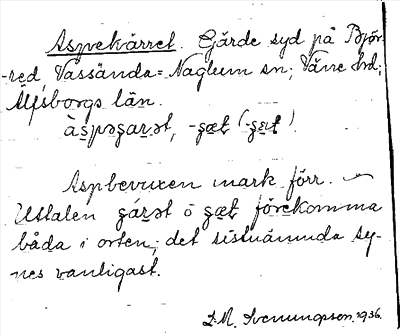 Aspekärret. Gärde syd på Björ-
red, Vassända-Naglum sn; Väne hd;
Älfsborgs län.
àspəgaꞃət, -gæt (-gat)
Aspbevuxen mark förr. –
Uttalen gáꞃət o gæt förekomma
båda i orten; det sistnämnda sy-
nes vanligast.
D.M. Svenungsson. 1936.